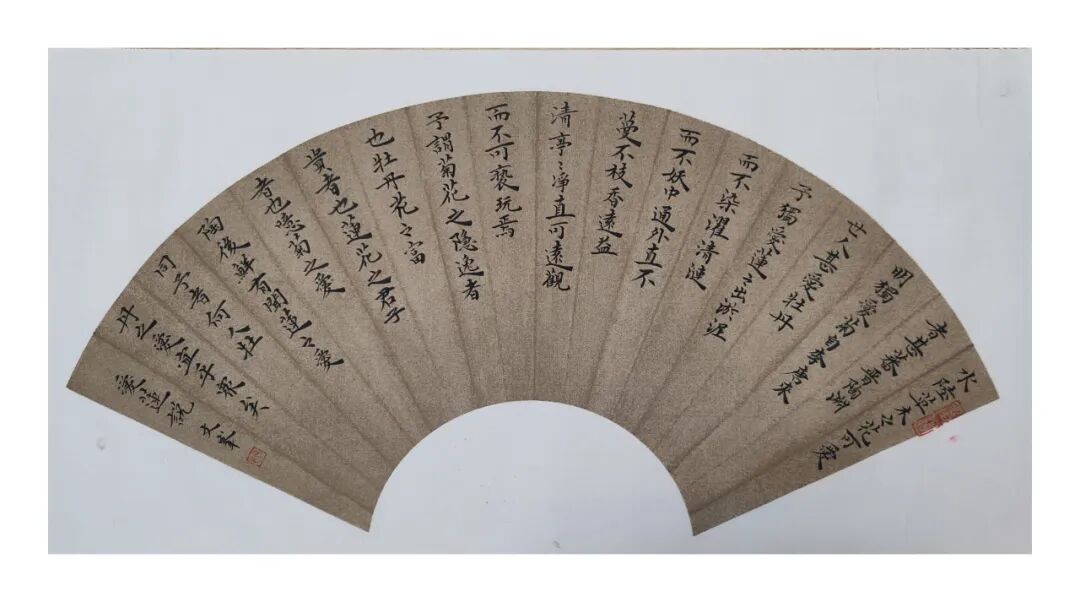 水陸草木之花可愛
者甚蕃晉陶淵
明獨愛菊自李唐來
世人甚愛牡丹
予獨愛蓮之出淤泥
而不染濯清漣
而不妖中通外直不
蔓不枝香遠益
清亭〻淨直可遠觀
而不可褻玩焉
予謂菊花之隐逸者
也牡丹花之富
貴者也蓮花之君子
者也噫菊之愛
陶後鮮有聞蓮之愛
同予者何人牡
丹之愛宜乎衆矣
愛蓮說 文峯